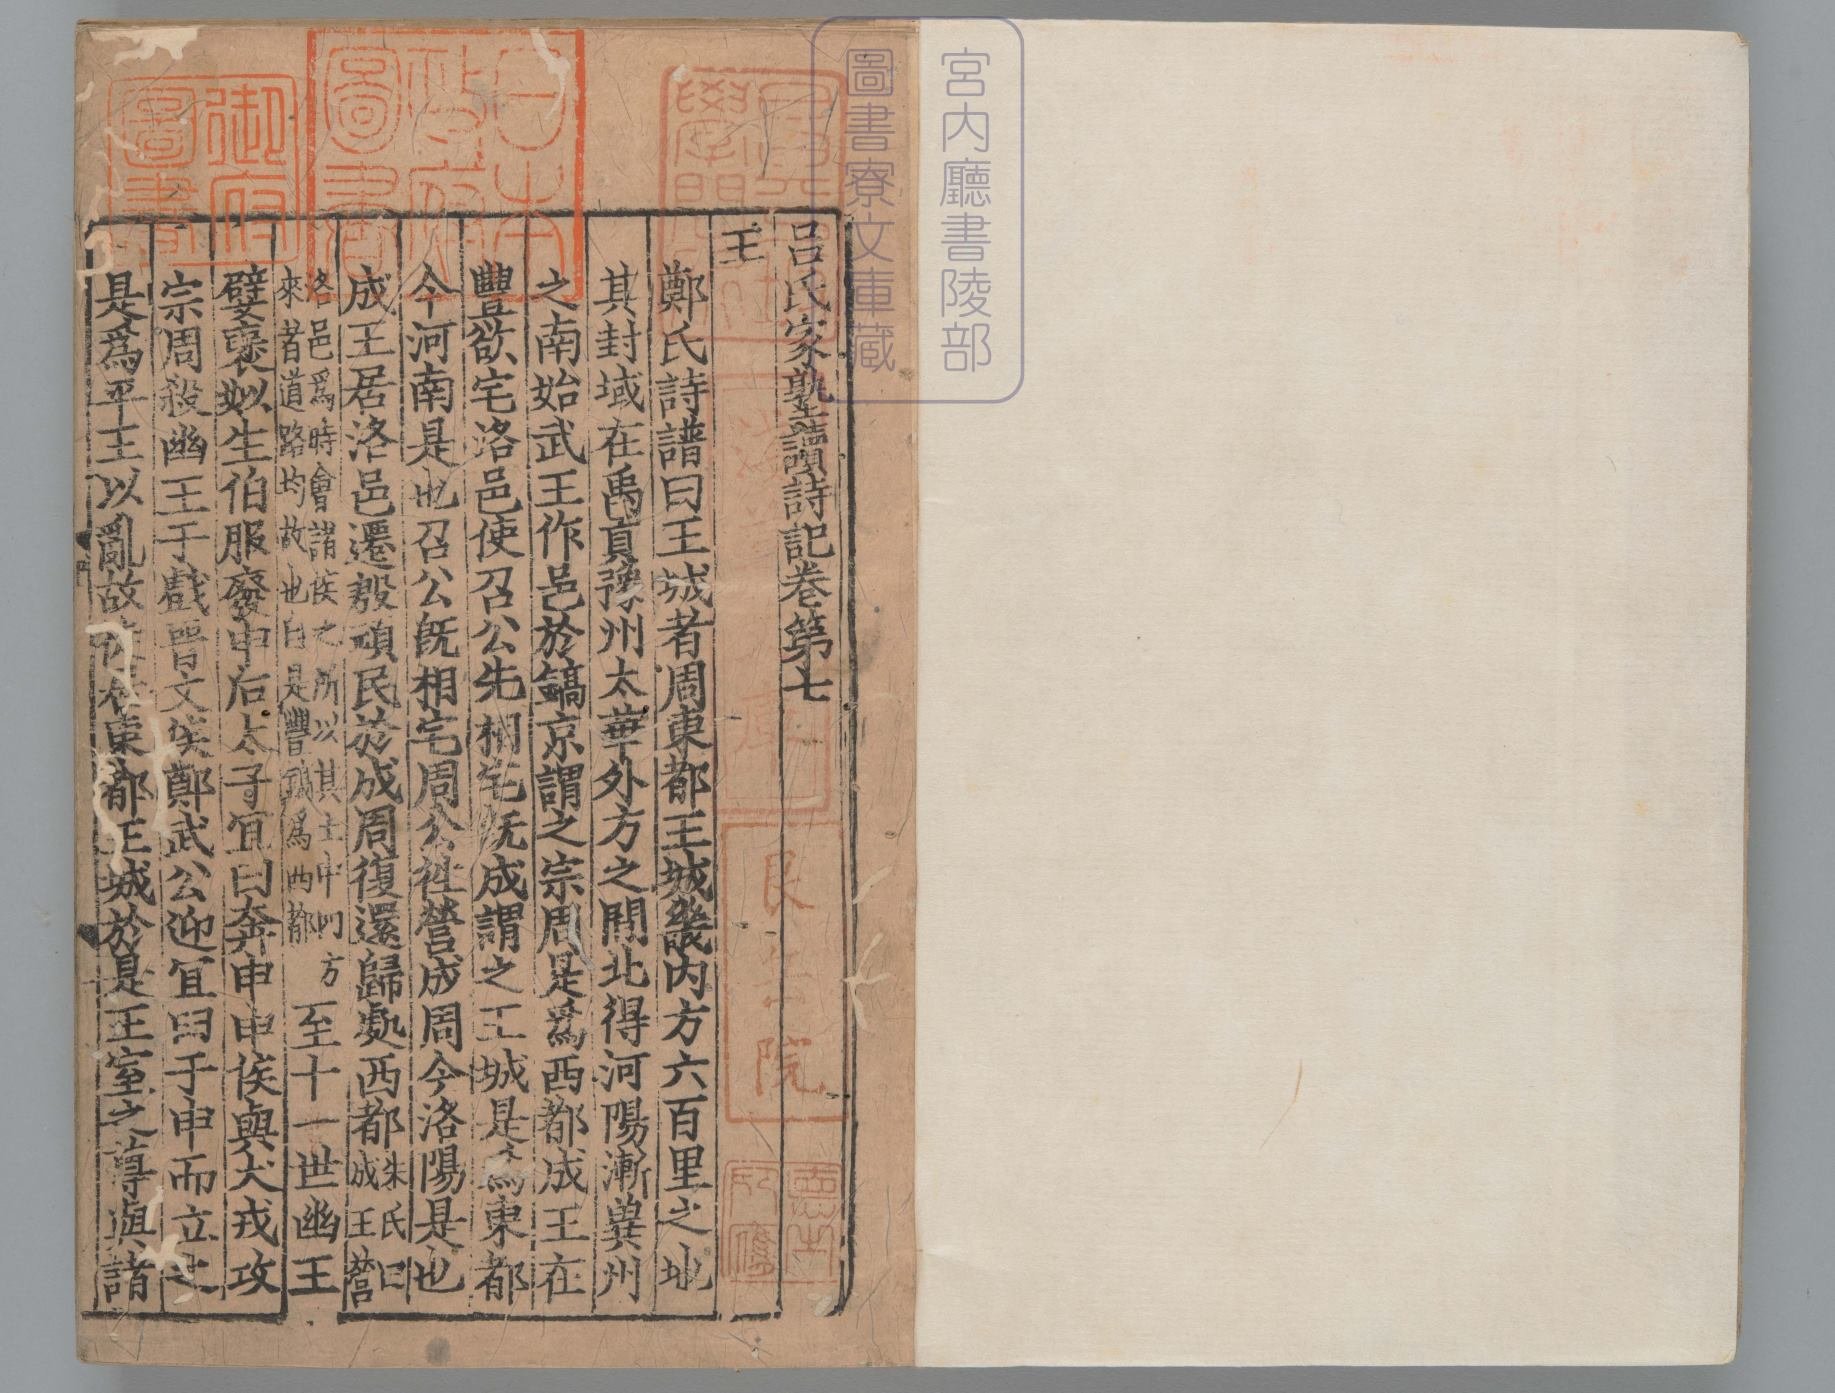 宮内廳書陵部
圖書寮文庫藏
呂氏家塾讀詩記卷第七
王
鄭氏詩譜曰王城者周東都王城畿内方六百里之地
其封域在禹貢豫州太華外方之間北得河陽漸兾州
之南始武王作邑於鎬京謂之宗周是爲西都成王在
豐欲宅洛邑使召公先相宅旣成謂之王城是爲東都
今河南是也召公旣相宅周公徃營成周今洛陽是也
成王居洛邑遷殷頑民於成周復還歸處西都朱氏曰成王營
洛邑爲時會諸侯之所以其土中四方來者道路均故也自是豐鎬爲西都至十一世幽王
嬖襃姒生伯服廢申后太子宜臼奔申申侯與犬戎攻
宗周殺幽王于戲晉文侯鄭武公迎宜臼于申而立之
是爲平王以亂故徙居東都王城於是王室之尊與諸
日本政府圖書
御府圖書
艮岳院